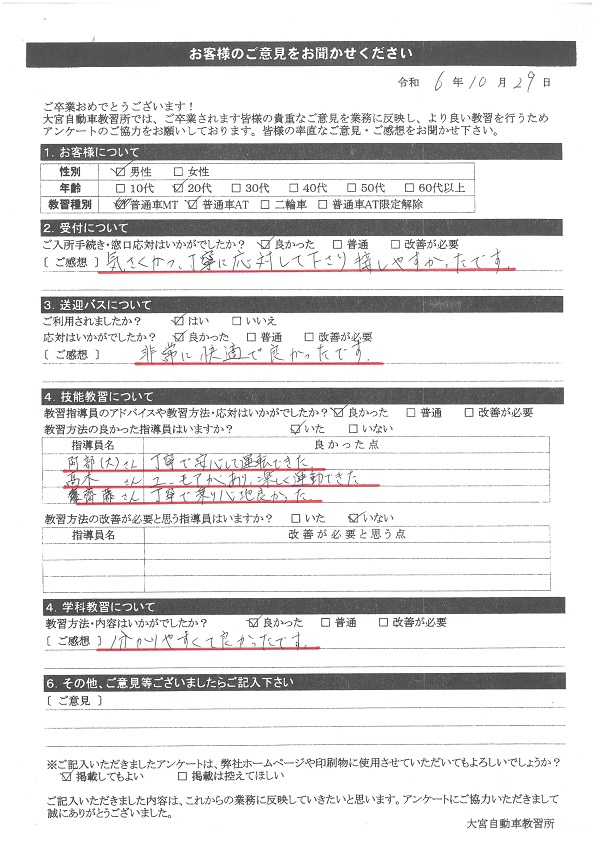 お客様のご意見をお聞かせください
令和 6 年 10 月 29 日
ご卒業おめでとうございます！
大宮自動車教習所では、ご卒業されます皆様の貴重なご意見を業務に反映し、より良い教習を行うため
アンケートのご協力をお願いしております。皆様の率直なご意見・ご感想をお聞かせ下さい。
1. お客様について
性別 ☑男性 □女性
年齢 □10代 ☑20代 □30代 □40代 □50代 □60代以上
教習種別 ☑普通車MT ☑普通車AT □二輪車 □普通車AT限定解除
2. 受付について
ご入所手続き・窓口応対はいかがでしたか？ ☑良かった □普通 □改善が必要
〔 ご感想 〕 気さくかつ、丁寧に応対して下さり接しやすかったです。
3. 送迎バスについて
ご利用されましたか？ ☑はい □いいえ
応対はいかがでしたか？ ☑良かった □普通 □改善が必要
〔 ご感想 〕 非常に快適で良かったです。
4. 技能教習について
教習指導員のアドバイスや教習方法・応対はいかがでしたか？ ☑良かった □普通 □改善が必要
教習方法の良かった指導員はいますか？ ☑いた □いない
指導員名 良かった点
阿部(大)さん 丁寧で安心して運転できた
高木 さん ユーモアがあり、楽しく運動できた
齊藤さん 丁寧で乗り心地良かった。
教習方法の改善が必要と思う指導員はいますか？ □いた ☑いない
指導員名 改善が必要と思う点
4. 学科教習について
教習方法・内容はいかがでしたか？ ☑良かった □普通 □改善が必要
〔 ご感想 〕 分かりやすくて良かったです。
6. その他、ご意見等ございましたらご記入下さい
〔 ご意見 〕
※ご記入いただきましたアンケートは、弊社ホームページや印刷物に使用させていただいてもよろしいでしょうか？
☑掲載してもよい □掲載は控えてほしい
ご記入いただきました内容は、これからの業務に反映していきたいと思います。アンケートにご協力いただきまして
誠にありがとうございました。
大宮自動車教習所